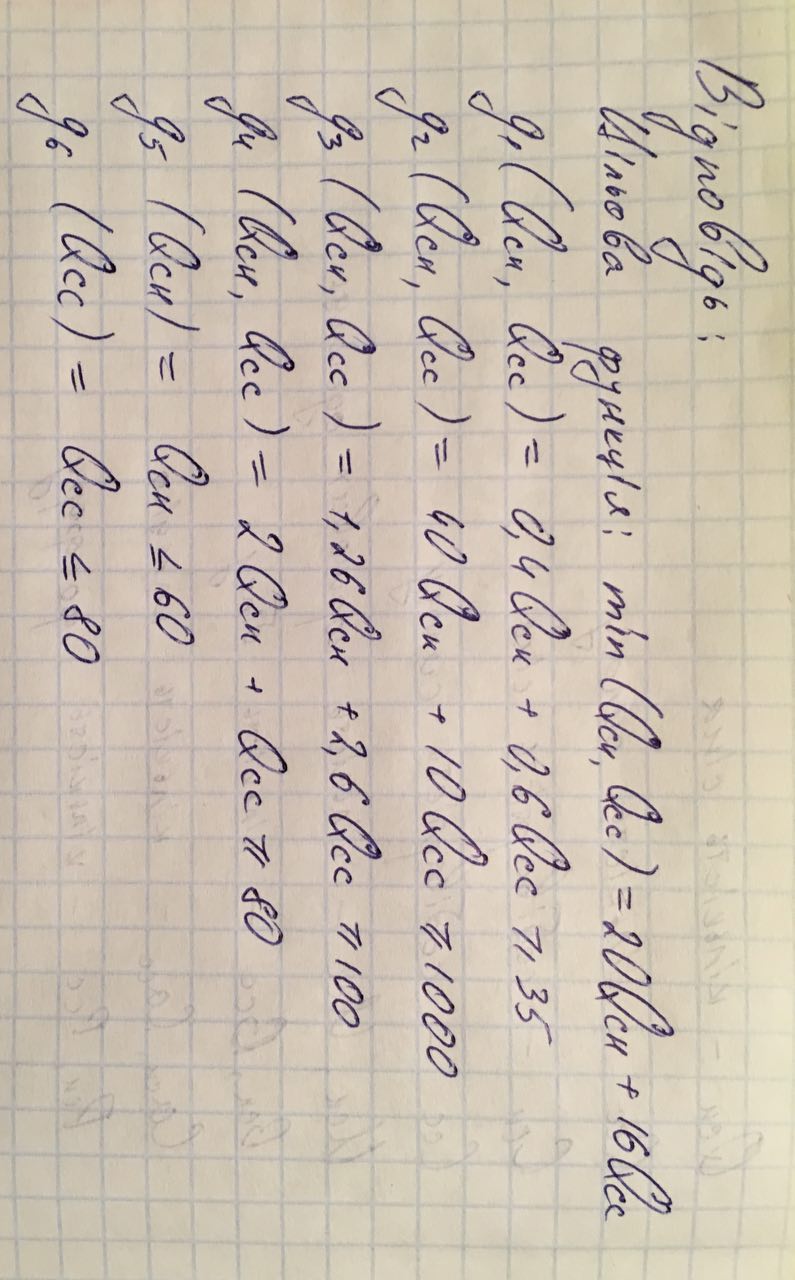 Відповідь:
Цільова функція: min (Qсн, Qсс) = 20Qсн + 16Qсс
g₁ (Qсн, Qсс) = 0,4Qсн + 0,6Qсс ≥ 35
g₂ (Qсн, Qсс) = 40Qсн + 10Qсс ≥ 1000
g₃ (Qсн, Qсс) = 1,26Qсн + 2,6Qсс ≥ 100
g₄ (Qсн, Qсс) = 2Qсн + Qсс ≥ 80
g₅ (Qсн) = Qсн ≤ 60
g₆ (Qсс) = Qсс ≤ 80